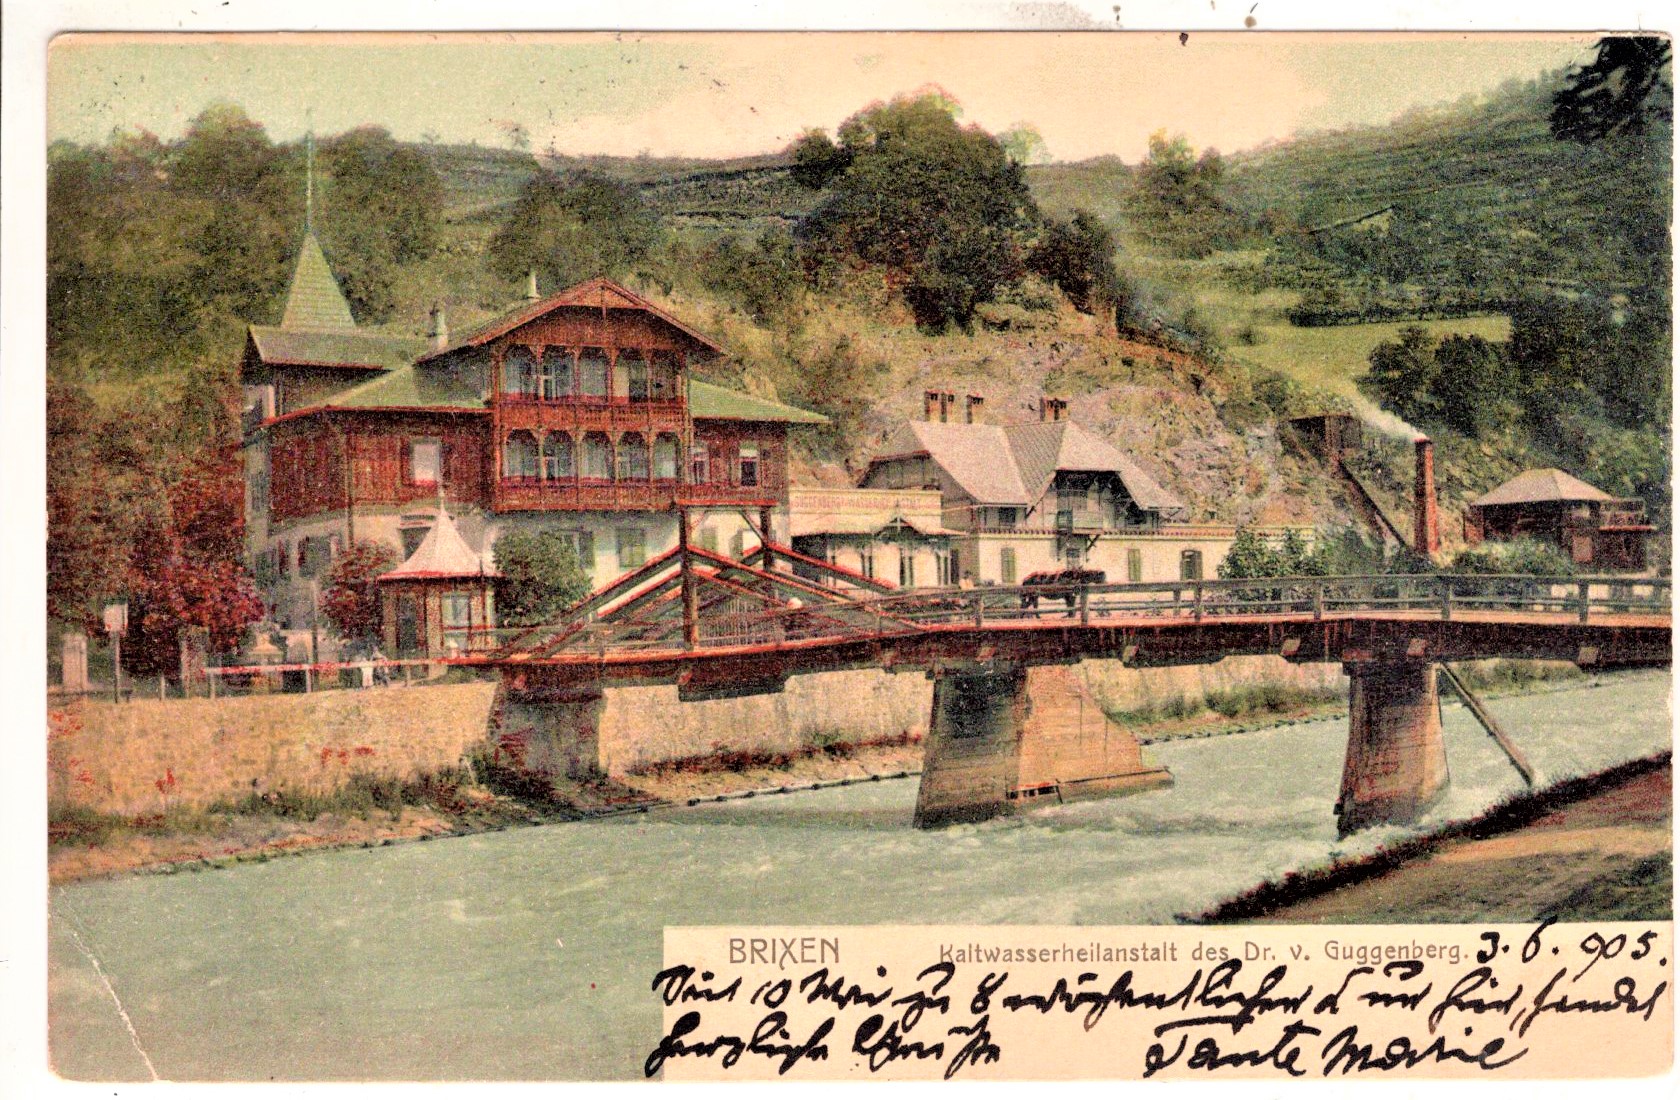 BRIXEN Kaltwasserheilanstalt des Dr. v. Guggenberg. 3. 6. 905.
Seit 10 Mai zu 8 wöchentlicher hier, sendet
herzliche Grüße Tante Marie